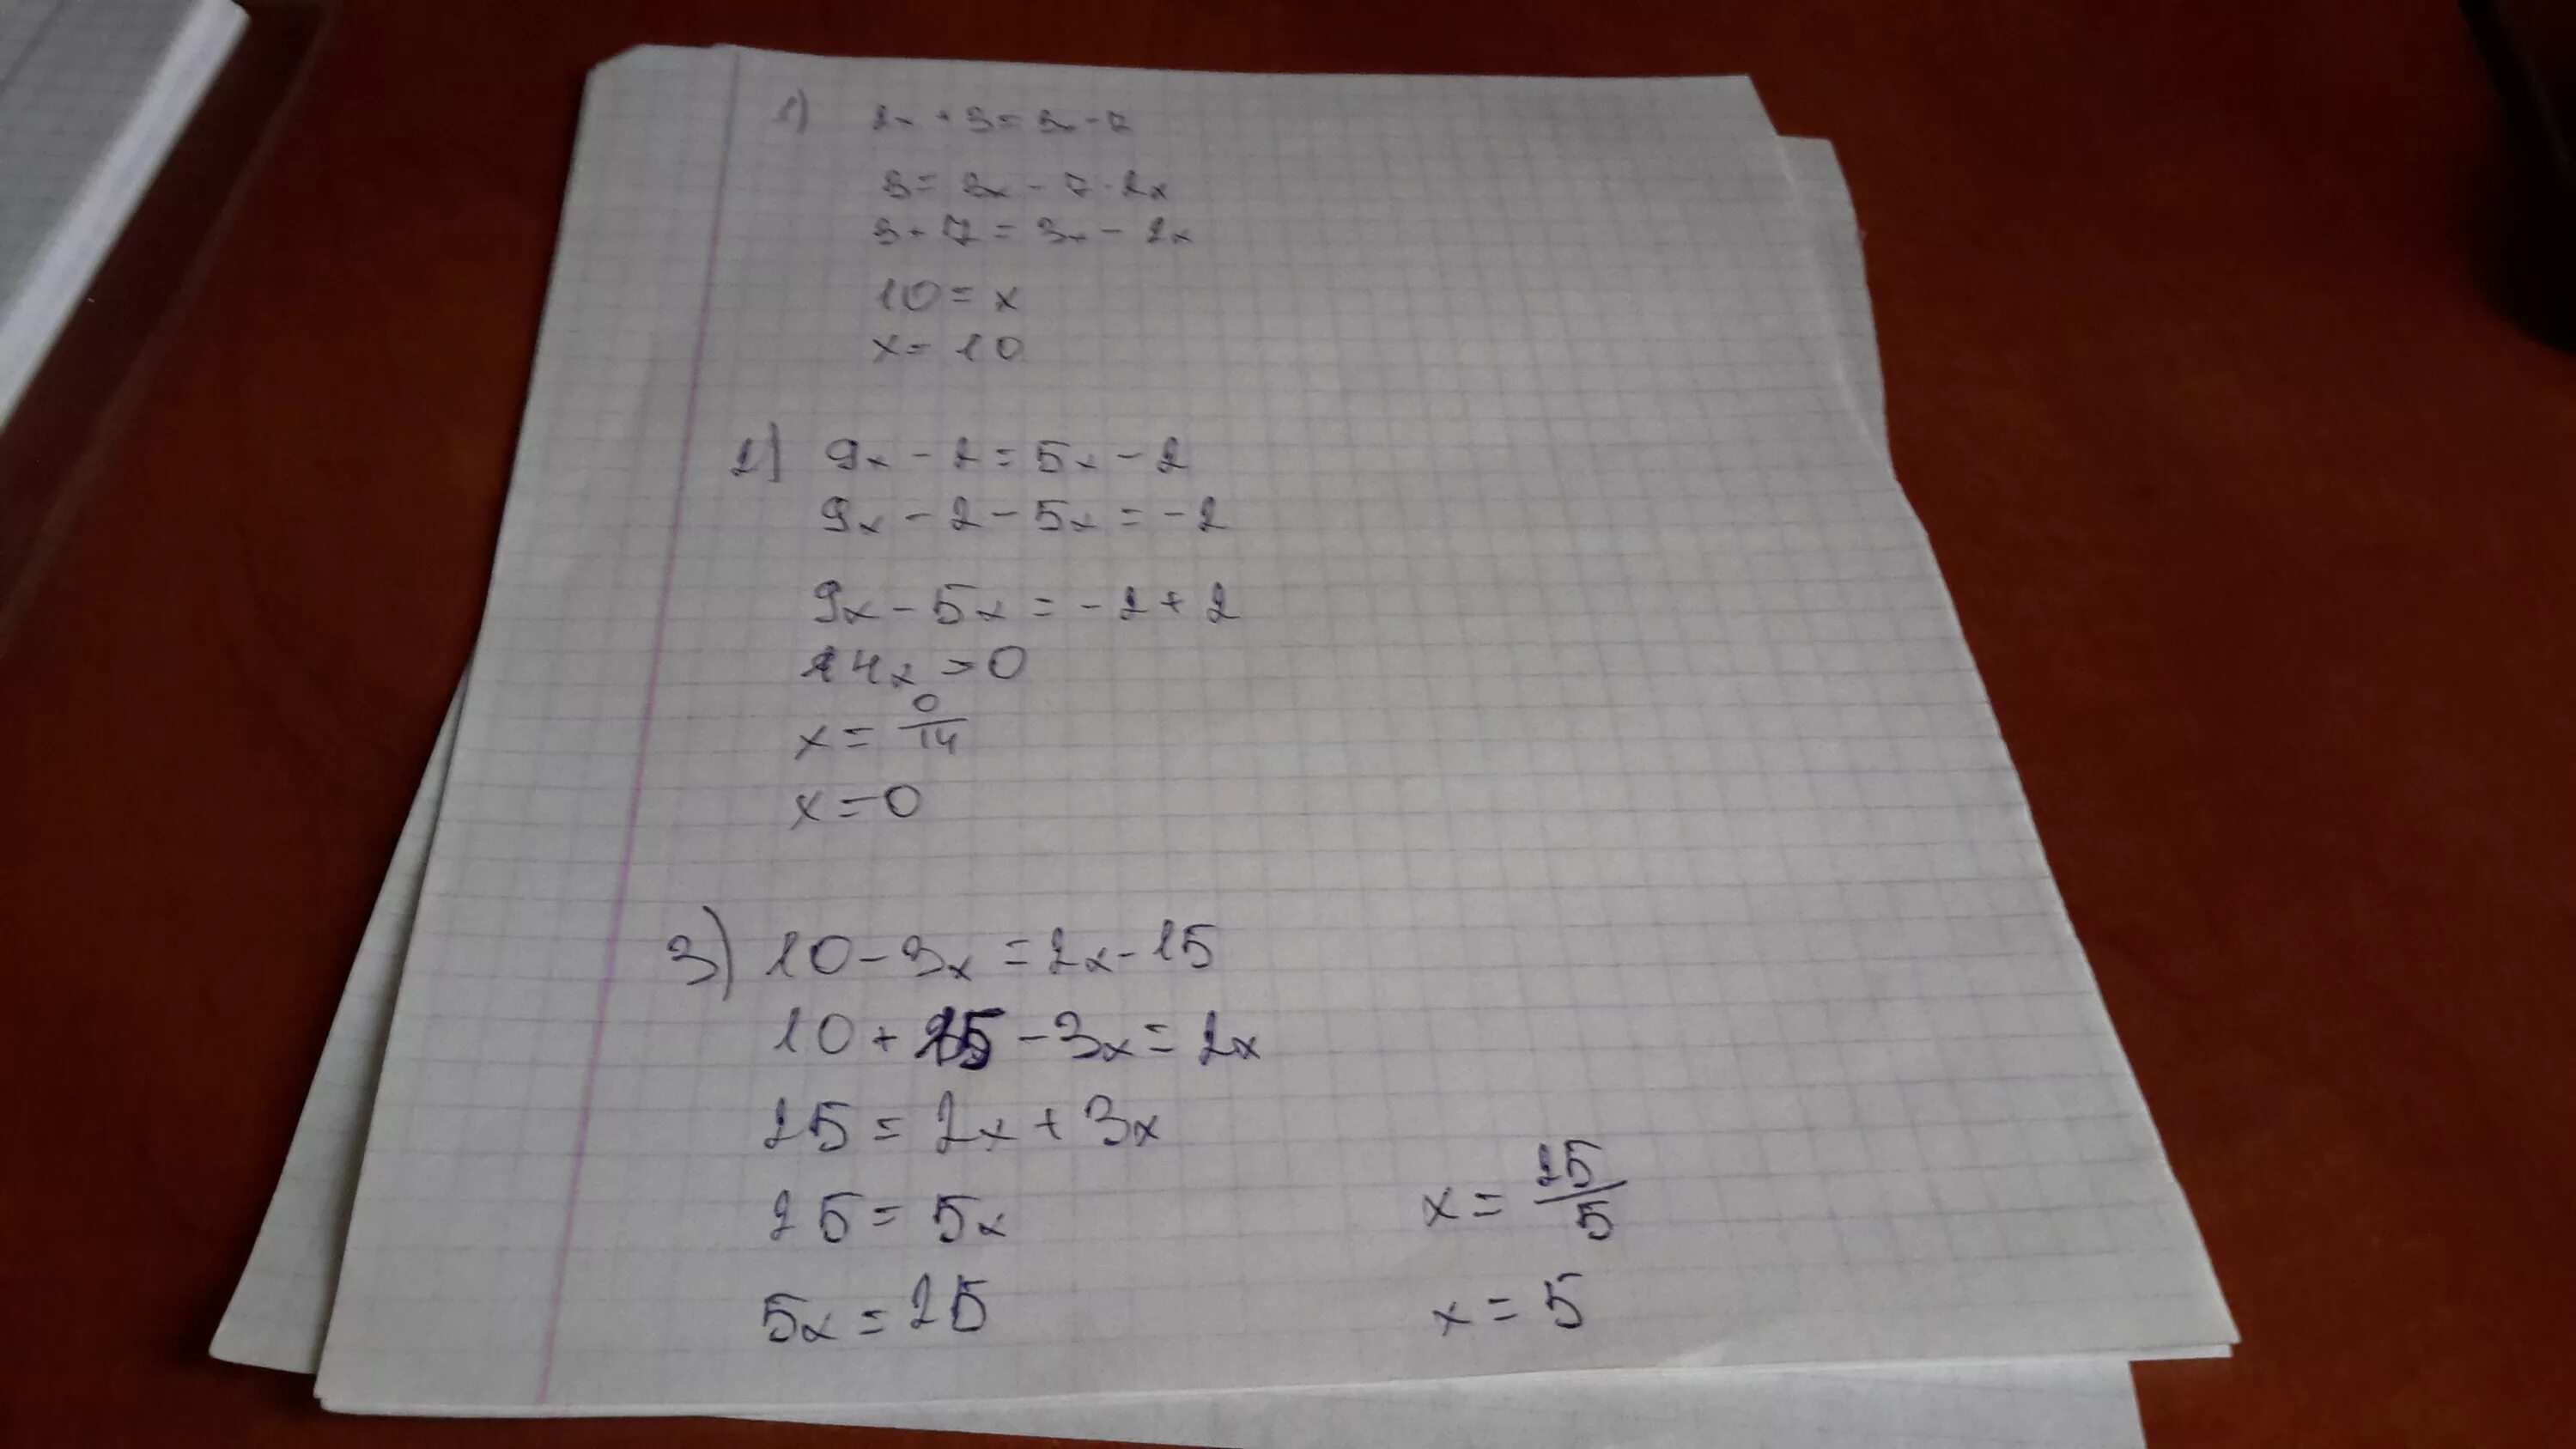 1) 2x + 3 = 3x - 7
3 = 3x - 7 - 2x
3 + 7 = 3x - 2x
10 = x
x = 10
2) 9x - 2 = 5x - 2
9x - 2 - 5x = -2
9x - 5x = -2 + 2
14x = 0
x = 0/14
x = 0
3) 10 - 3x = 2x - 15
10 + 15 - 3x = 2x
25 = 2x + 3x
25 = 5x
5x = 25
x = 25/5
x = 5